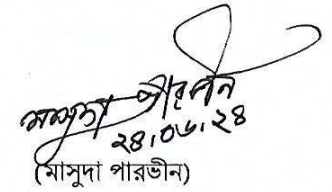 মাসুদা পারভীন
২৪.০৬.২৪
(মাসুদা পারভীন)